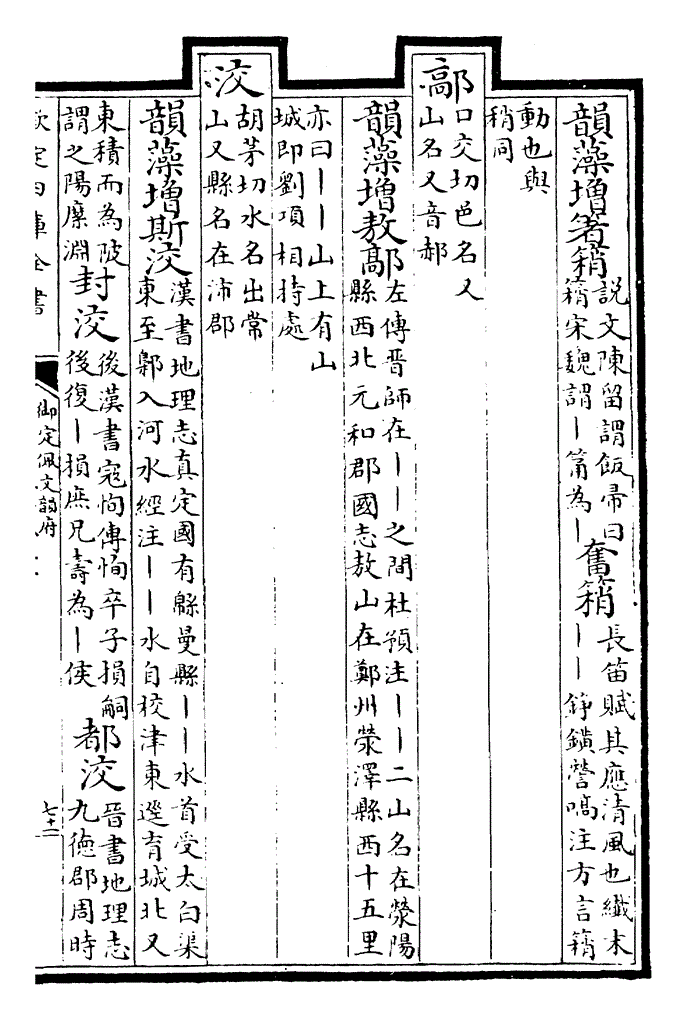 韻藻增箸䈰說文陳留謂飯帚曰
䈰宋魏謂｜筩為｜
奮䈰長笛賦其應清風也纖末
｜｜錚鐄謍嗃注方言䈰
動也與
稍同
鄗口交切邑名又
山名又音郝
韻藻增敖鄗左傳晉師在｜｜之間杜預注｜｜二山名在滎陽
縣西北元和郡國志敖山在鄭州滎澤縣西十五里
亦曰｜｜山上有山
城即劉項相持處
洨胡茅切水名出常
山又縣名在沛郡
韻藻增斯洨漢書地理志真定國有緜曼縣｜｜水首受太白渠
東至鄡入河水經注｜｜水自校津東逕育城北又
東積而為陂
謂之陽縻淵
封洨後漢書寇恂傳恂卒子損嗣
後復｜損庶兄壽為｜侯
都洨晉書地理志
九德郡周時
欽定四庫全書
御定佩文韻府
七十二